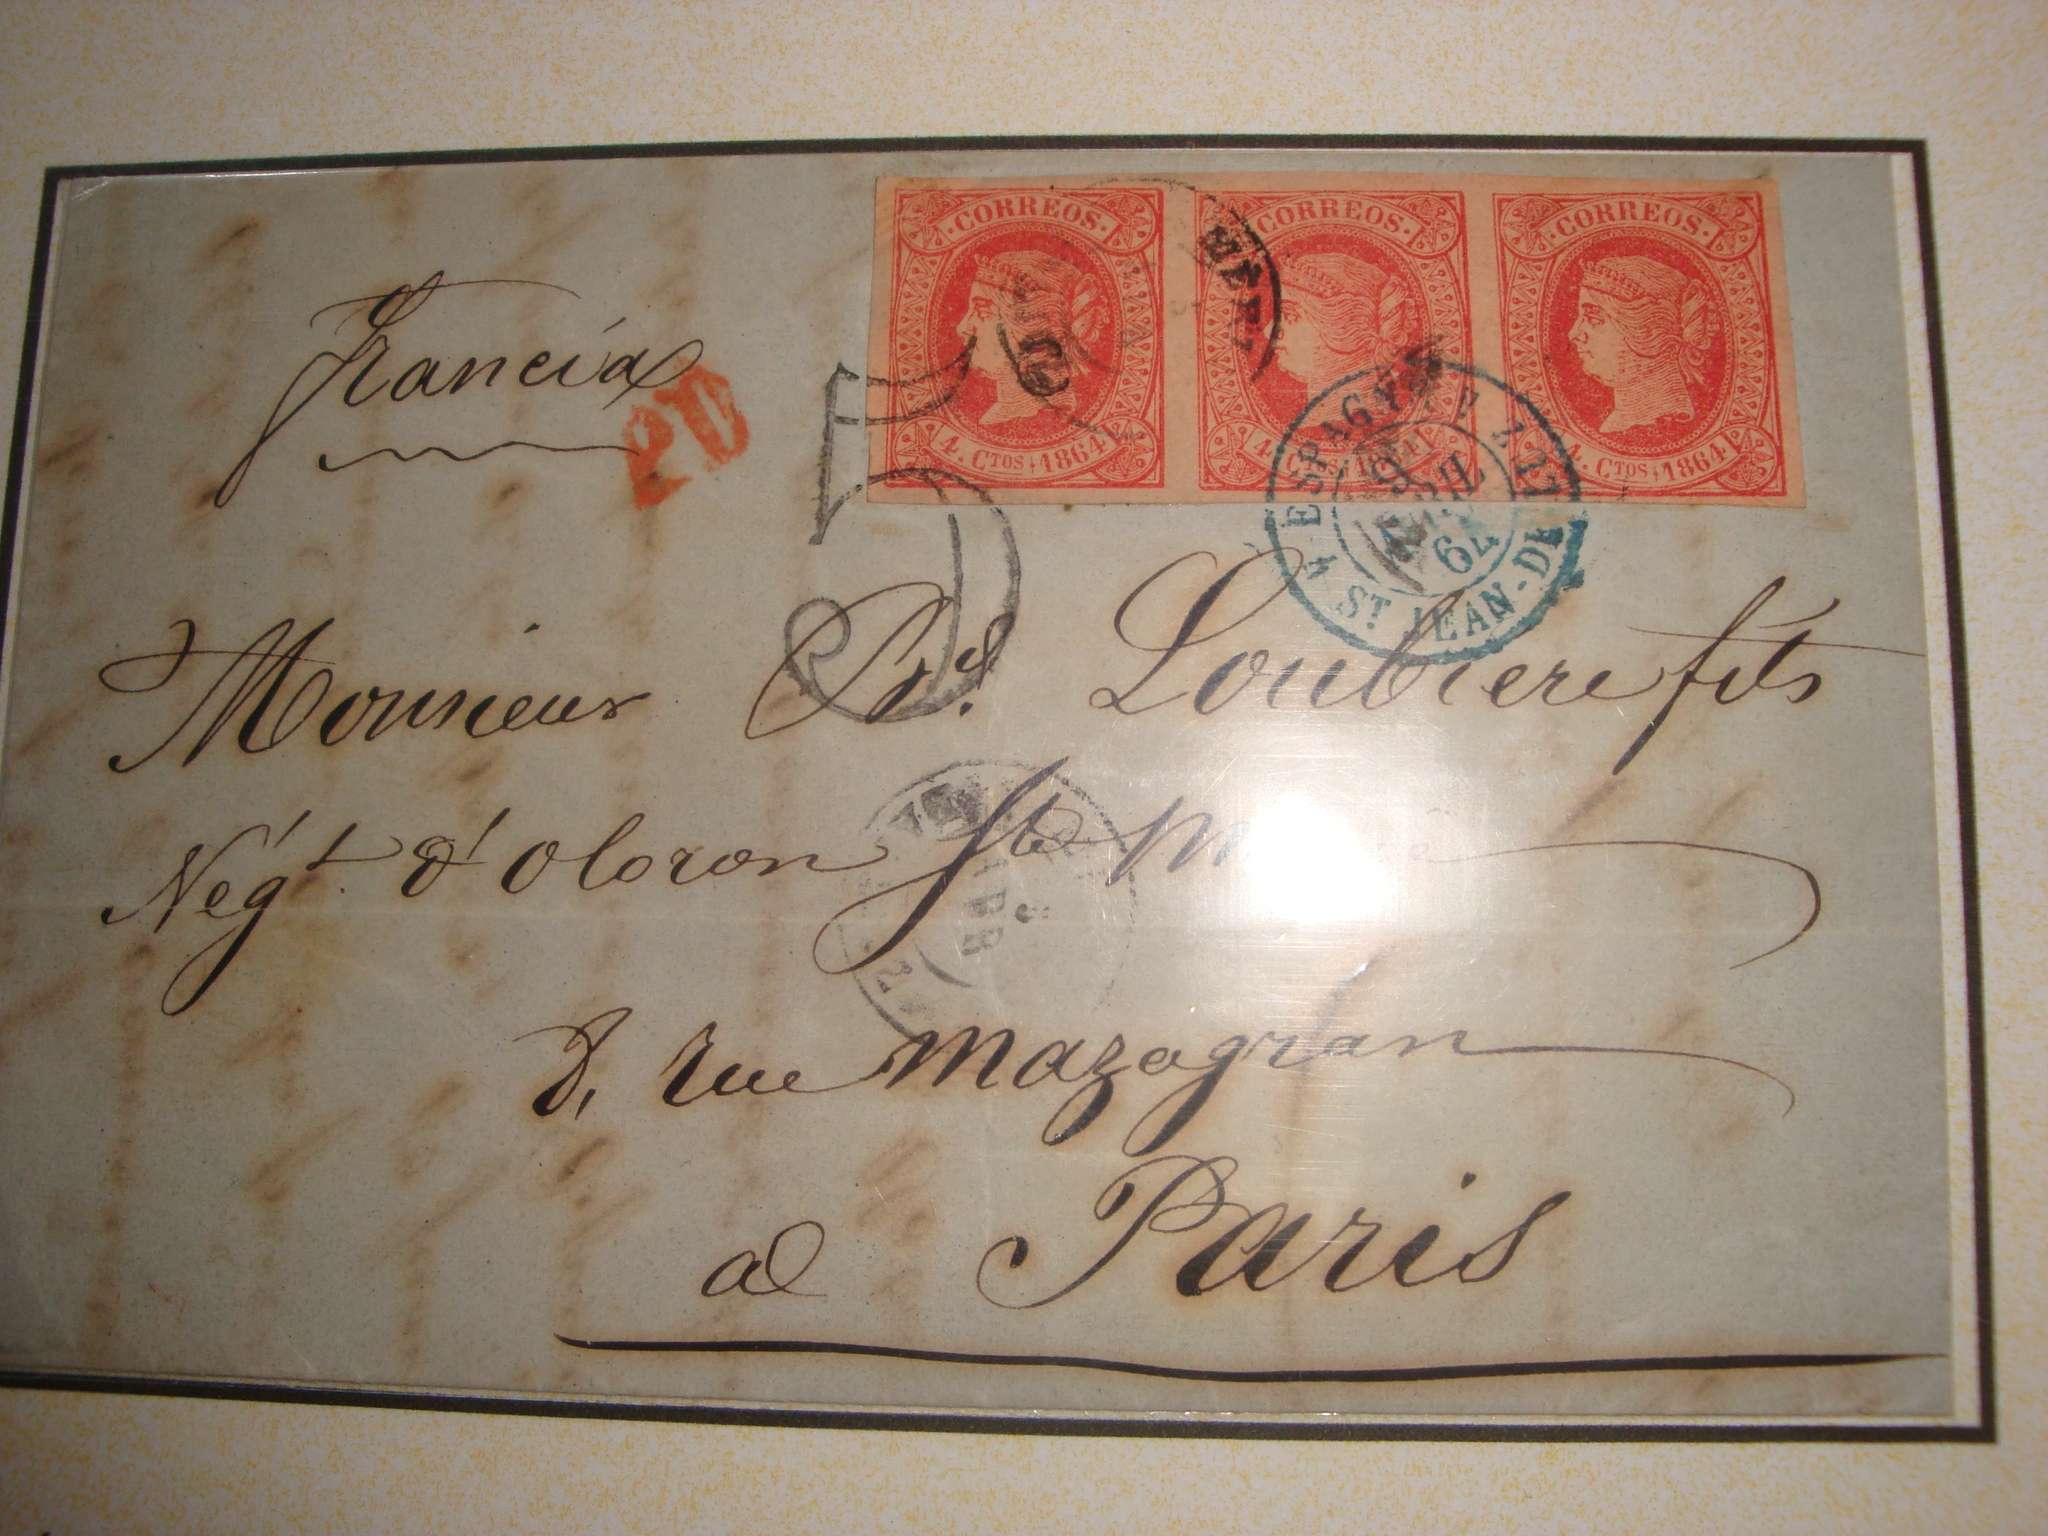 CORREOS CORREOS CORREOS
4. CTOS 1864 4. CTOS 1864 4. CTOS 1864
Francia
PD
5
ESPAGNE ST JEAN-DE-LUZ
9 AVRIL 64
Monsieur Bd. Loubiere fils
Négt. d'Oloron Ste M
ABR
8, rue Mazagran
a Paris